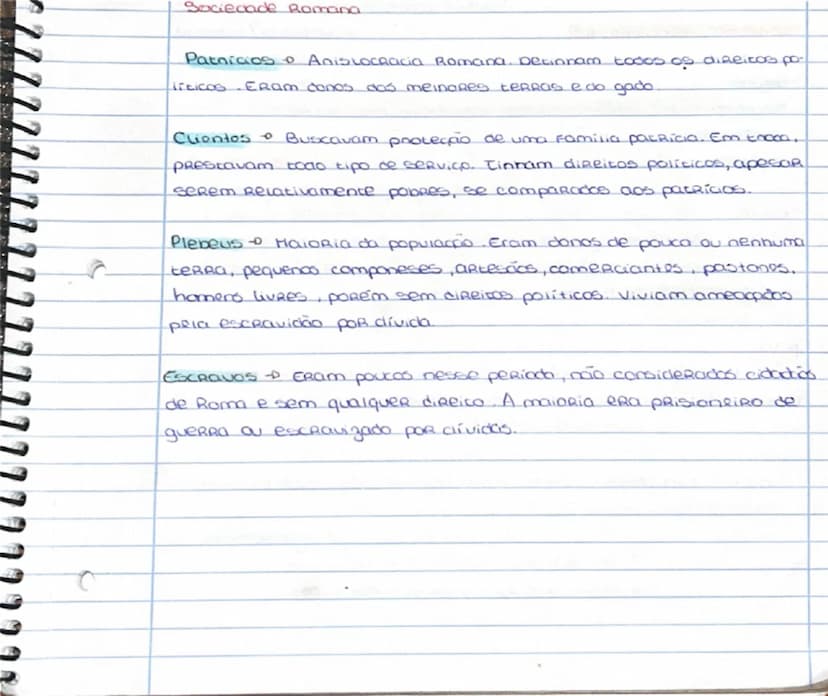 Sociedade Romana
Patrícios → Aristocracia Romana. Detinham todos os direitos po-
líticos. Eram donos das melhores terras e do gado.
Clientes → Buscavam proteção de uma família patrícia. Em troca,
prestavam todo tipo de serviço. Tinham direitos políticos, apesar
serem relativamente pobres, se comparados aos patrícios.
Plebeus → Maioria da população. Eram donos de pouca ou nenhuma
terra, pequenos camponeses, artesãos, comerciantes, pastores,
homens livres, porém sem direitos políticos. Viviam ameaçados
pela escravidão por dívida.
Escravos → Eram poucos nesse período, não considerados cidadãos
de Roma e sem qualquer direito. A maioria era prisioneiro de
guerra ou escravizado por dívidas.